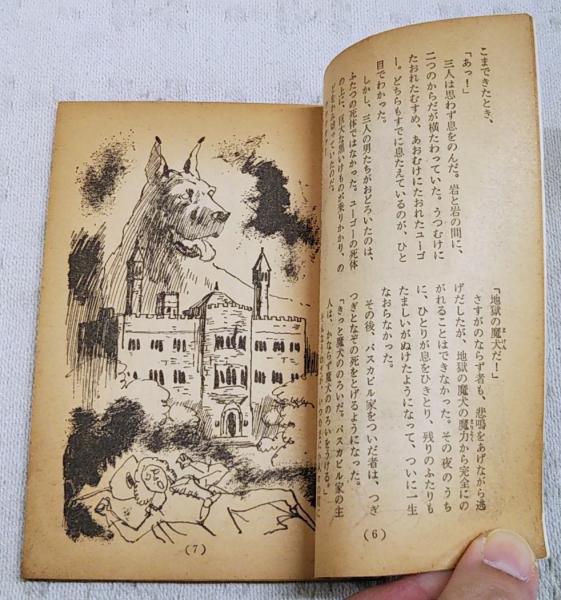 こまできたとき、
「あっ！」
三人は思わず息をのんだ。岩と岩の間に、
二つのからだが横たわっていた。うつむけに
たおれたむすめ、あおむけにたおれたユーゴ
ー。どちらもすでに息たえているのが、ひと
目でわかった。
しかし、三人の男たちがおどろいたのは、
ふたつの死体ではなかった。ユーゴーの死体
の上に、巨大な黒いけものが乗りかかり、の
「地獄の魔犬だ！」
さすがのならず者も、悲鳴をあげながら逃
げだしたが、地獄の魔犬の魔力から完全にの
がれることはできなかった。その夜のうち
に、ひとりが息をひきとり、残りのふたりも
たましいがぬけたようになって、ついに一生
なおらなかった。
その後、バスカビル家をついだ者は、つぎ
つぎとなぞの死をとげるようになった。
「きっと魔犬ののろいだ。バスカビル家の主
人は、かならず魔犬ののろいをうける。」
(6)
(7)